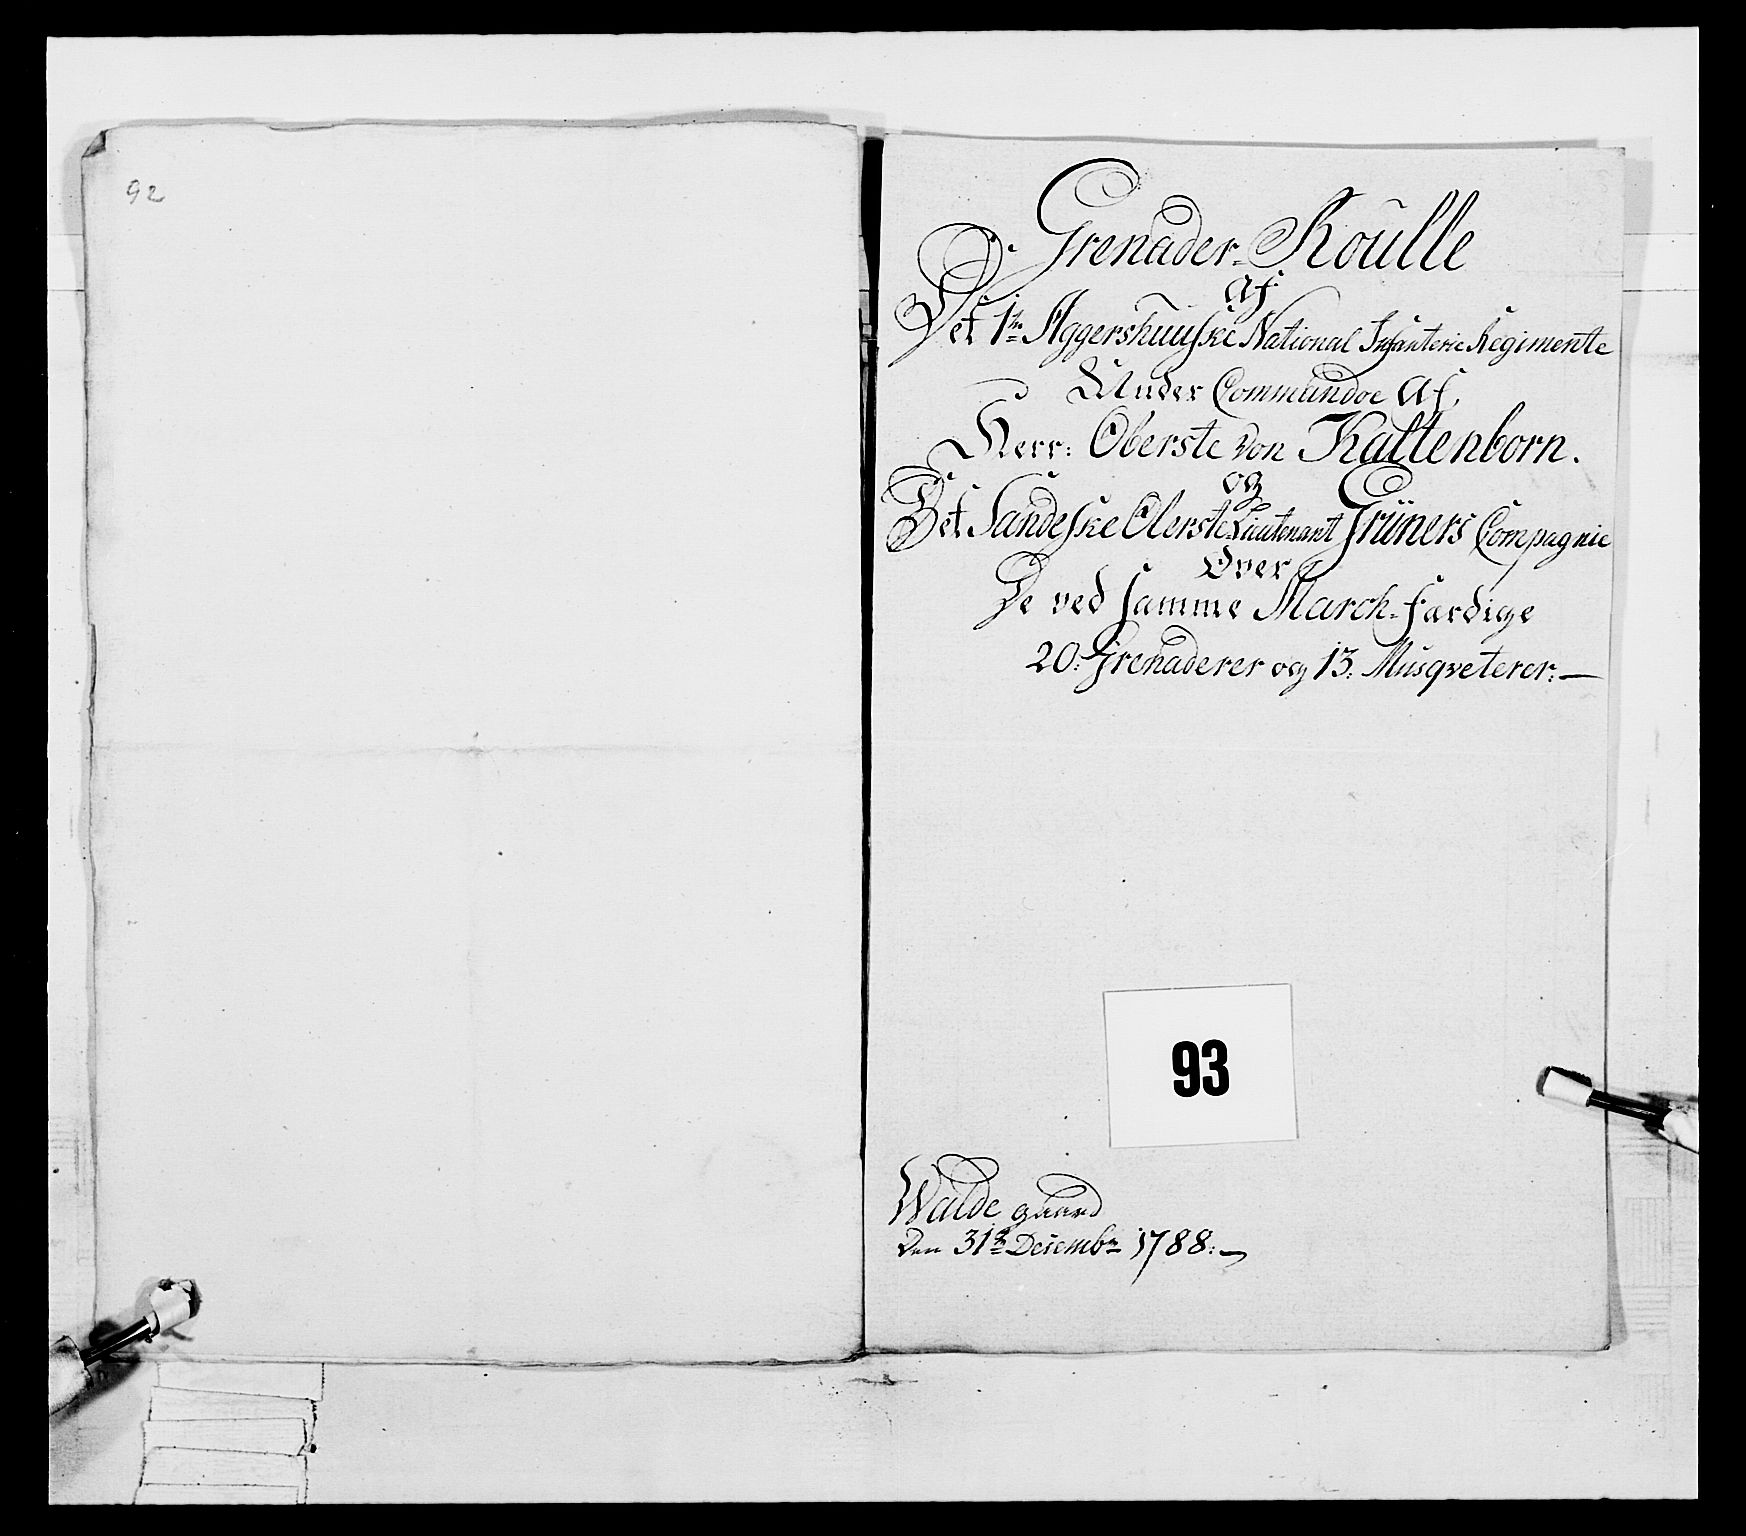 92
Grenader-Roulle
af
Det 1te Aggershuuske National Infanterie Regimente
Under Commandoe Af,
Herr: Oberste von Kaltenborn.
og
Det Sandeske Oberste Lieutenant Grüners Compagnie
Over
De ved samme March-færdige
20: Grenaderer og 13: Musqveterer:—
93
Walde gaard
Den 31te Decembr 1788:—